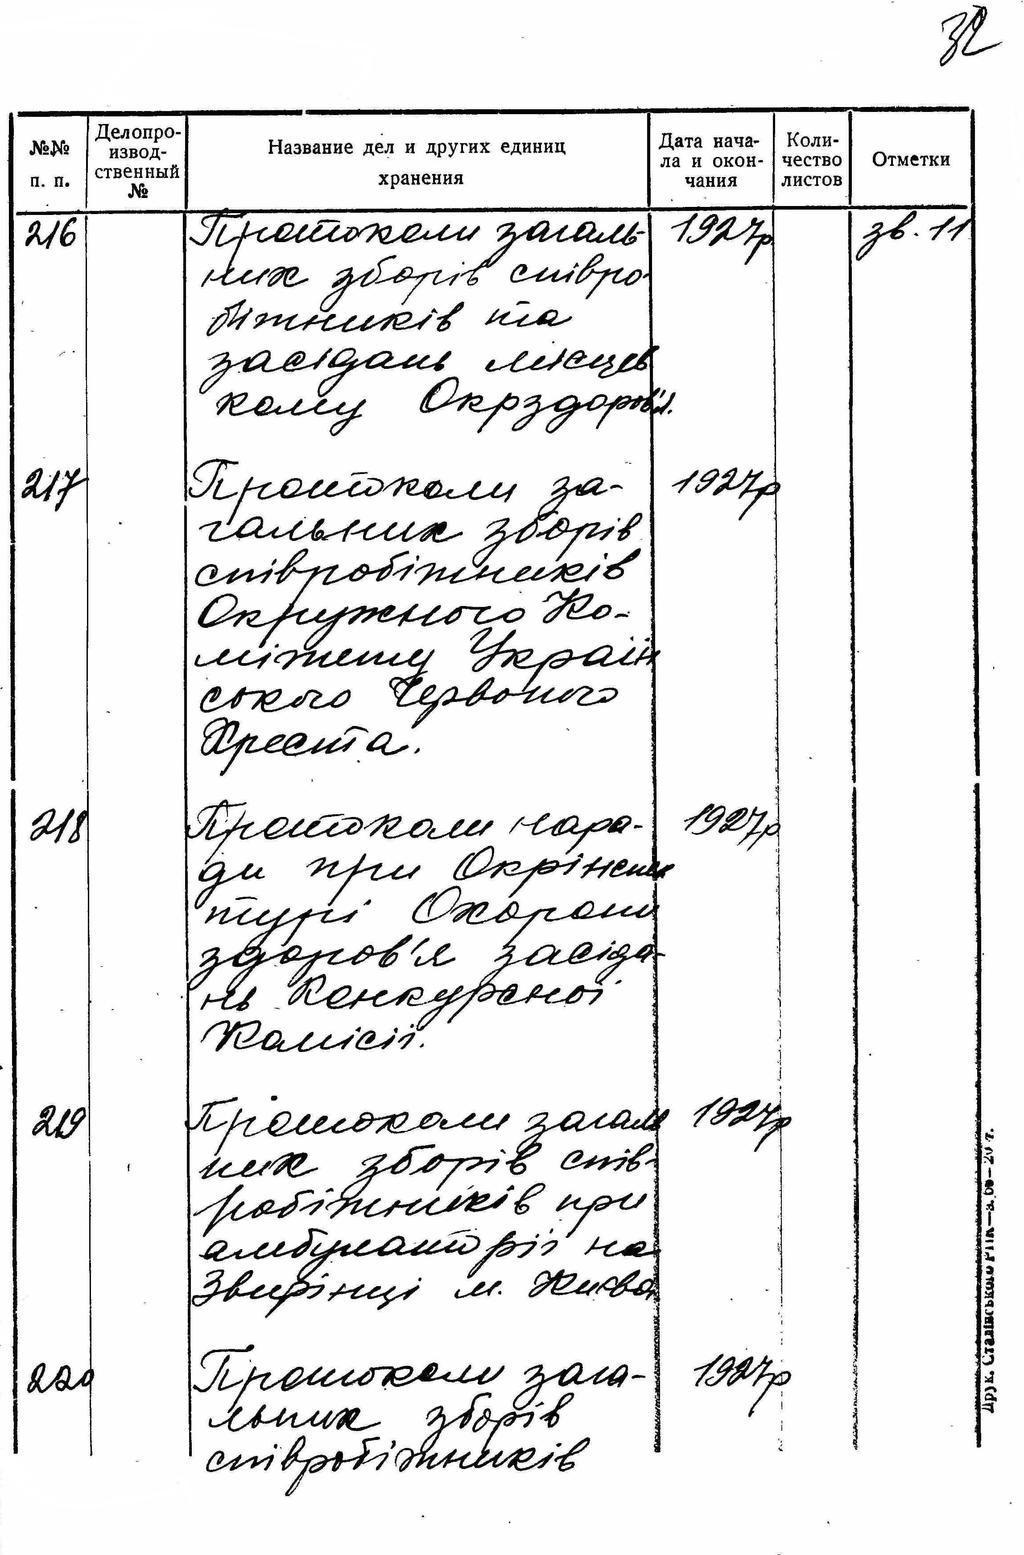 32
№№ п. п. Делопроизводственный № Название дел и других единиц хранения Дата начала и окончания Количество листов Отметки
216 Протоколи загаль- 1927р зв. 11
них зборів співро-
бітників та
засідань місцев
кому Окрздоров'я.
217 Протоколи за- 1927р
гальних зборів
співробітників
Окружного Ко-
мітету Україн
ського Червоного
Хреста.
218 Протоколи нара- 1927р
ди при Окрінспек
турі Охорони
здоров'я засіда-
нь Конкурсної
Комісії.
219 Протоколи загаль 1927р
них зборів спів-
робітників при
амбулаторії на
Звіринці м. Київа
220 Протоколи зага- 1927р
льних зборів
співробітників
Друк. Сталінського РПК